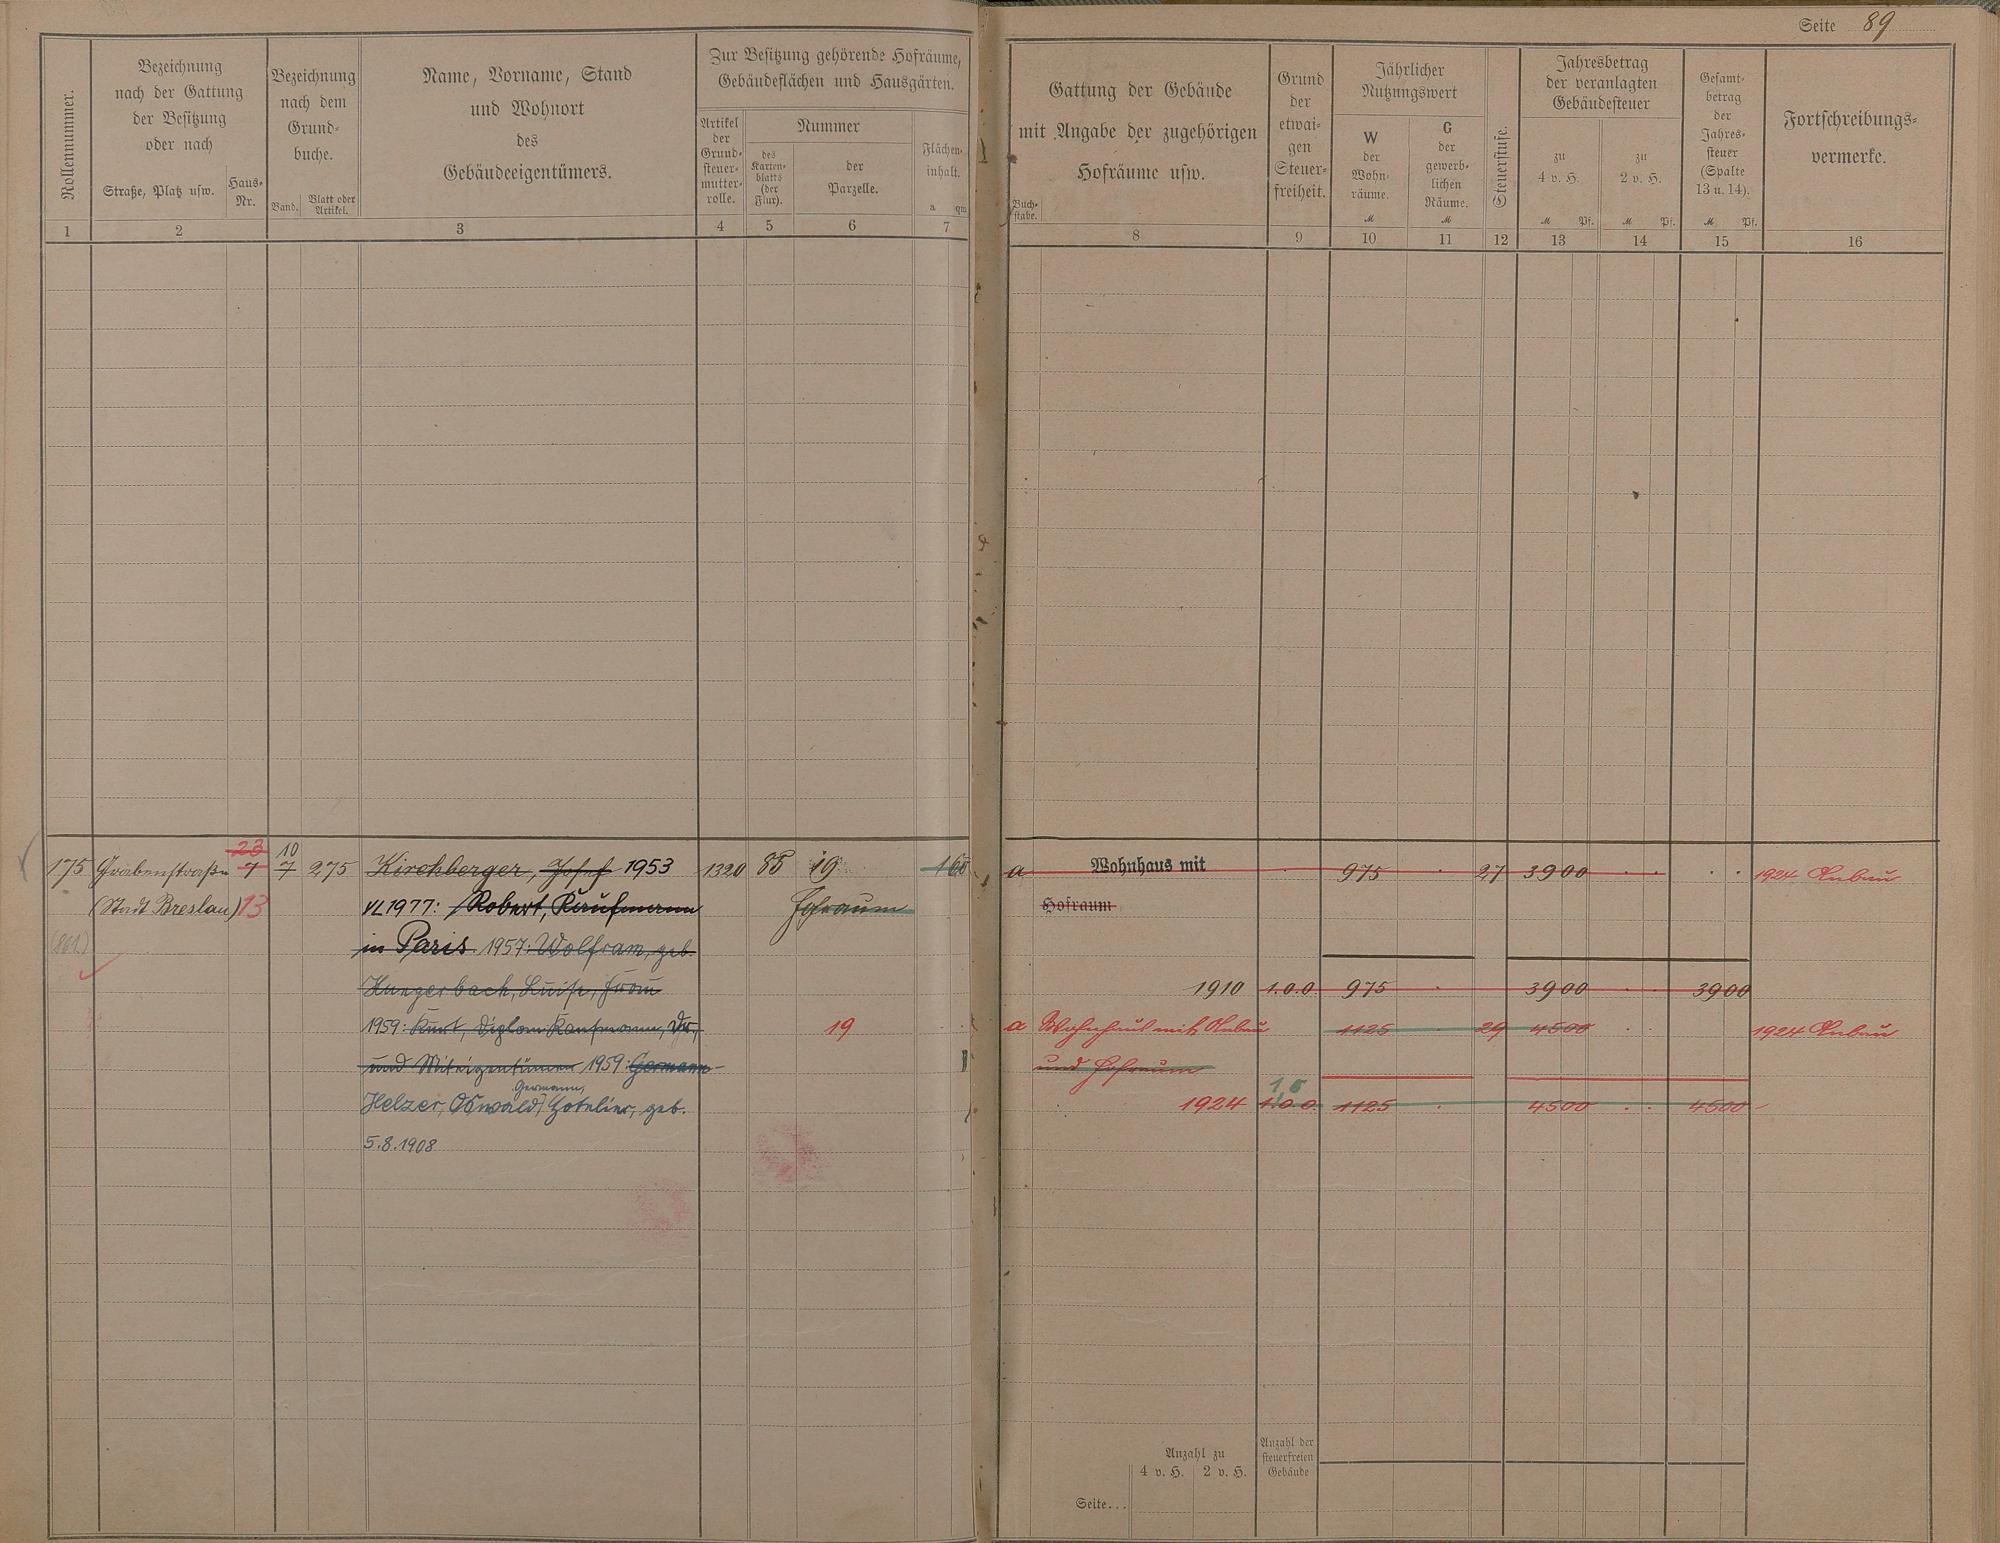 Seite 89
Rollennummer.
Bezeichnung
nach der Gattung
der Besitzung
oder nach
Straße, Platz usw.
Haus-
Nr.
Bezeichnung
nach dem
Grund-
buche.
Band.
Blatt oder
Artikel.
Name, Vorname, Stand
und Wohnort
des
Gebäudeeigentümers.
Zur Besitzung gehörende Hofräume,
Gebäudeflächen und Hausgärten.
Artikel
der
Grund-
steuer-
mutter-
rolle.
Nummer
des
Karten-
blatts
(der
Flur).
der
Parzelle.
Flächen-
inhalt.
a qm
1 2 3 4 5 6 7
Gattung der Gebäude
mit Angabe der zugehörigen
Hofräume usw.
Buch-
stabe.
Grund
der
etwai-
gen
Steuer-
freiheit.
Jährlicher
Nutzungswert
W
der
Wohn-
räume.
M
G
der
gewerb-
lichen
Räume.
M
Steuerstufe.
Jahresbetrag
der veranlagten
Gebäudesteuer
zu
4 v. H.
M Pf.
zu
2 v. H.
M Pf.
Gesamt-
betrag
der
Jahres-
steuer
(Spalte
13 u. 14).
M Pf.
Fortschreibungs-
vermerke.
8 9 10 11 12 13 14 15 16
23 10
175 Grabenstraße 7 7 275 Kirchberger, Josef 1953 1320 88 19 160
(Stadt Breslau) 13 VL1977: Robert, Kaufmann Hofraum
(861.) in Paris. 1957: Wolfram, geb.
Hungerbach, Luise, Frau
1959: Kurt, Diplom Kaufmann, Dr., 19
und Miteigentümer 1959: Germann-
Germann,
Helzer, Oswald, Hotelier, geb.
5.8.1908
a Wohnhaus mit 975 27 3900 1924 Anbau
Hofraum
1910 1.0.0. 975 3900 3900
a Wohnhaus mit Anbau 1125 29 4500 1924 Anbau
und Hofraum
1924 1.0.0. 1125 4500 4500
Anzahl zu
4 v. H. 2 v. H.
Anzahl der
steuerfreien
Gebäude
Seite...